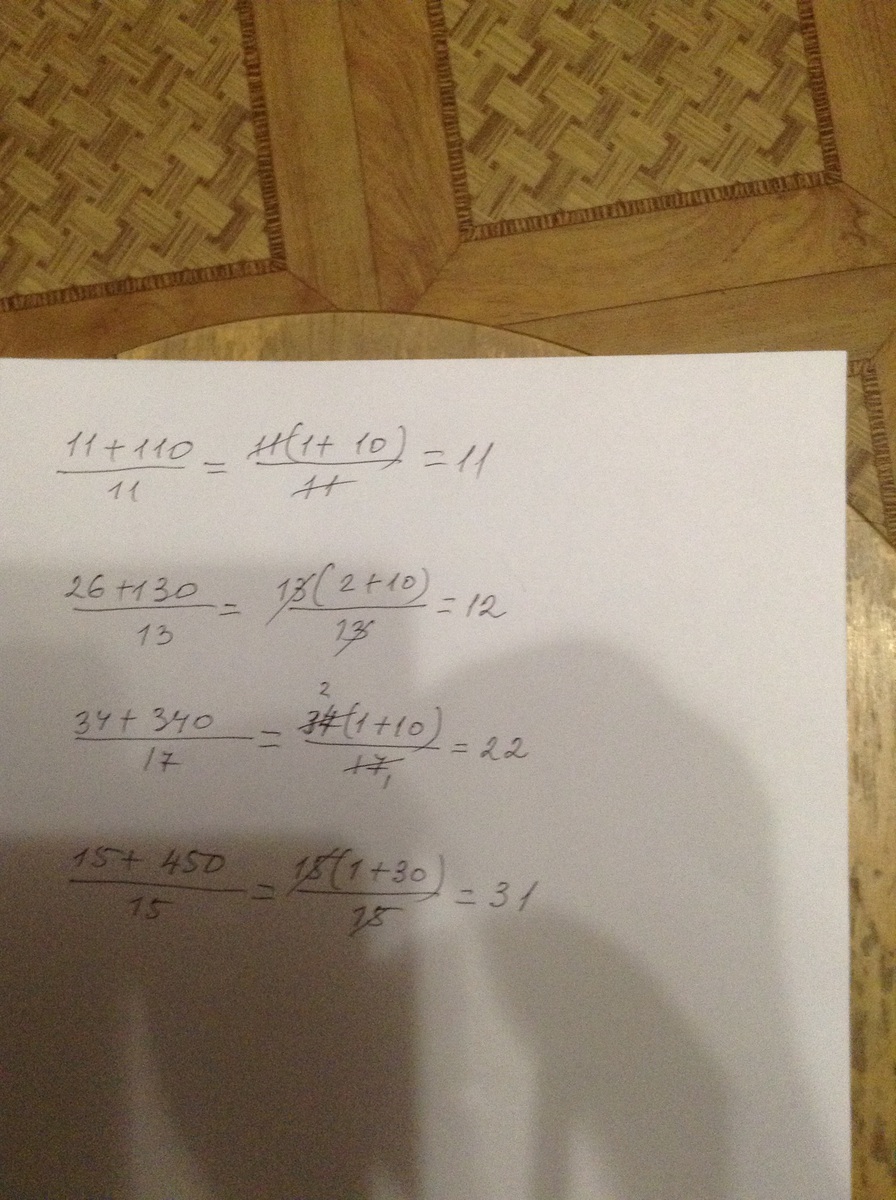 11+110 / 11 = 11(1+10) / 11 = 11
26+130 / 13 = 13(2+10) / 13 = 12
34+340 / 17 = 34 2 (1+10) / 17 1 = 22
15+450 / 15 = 15(1+30) / 15 = 31